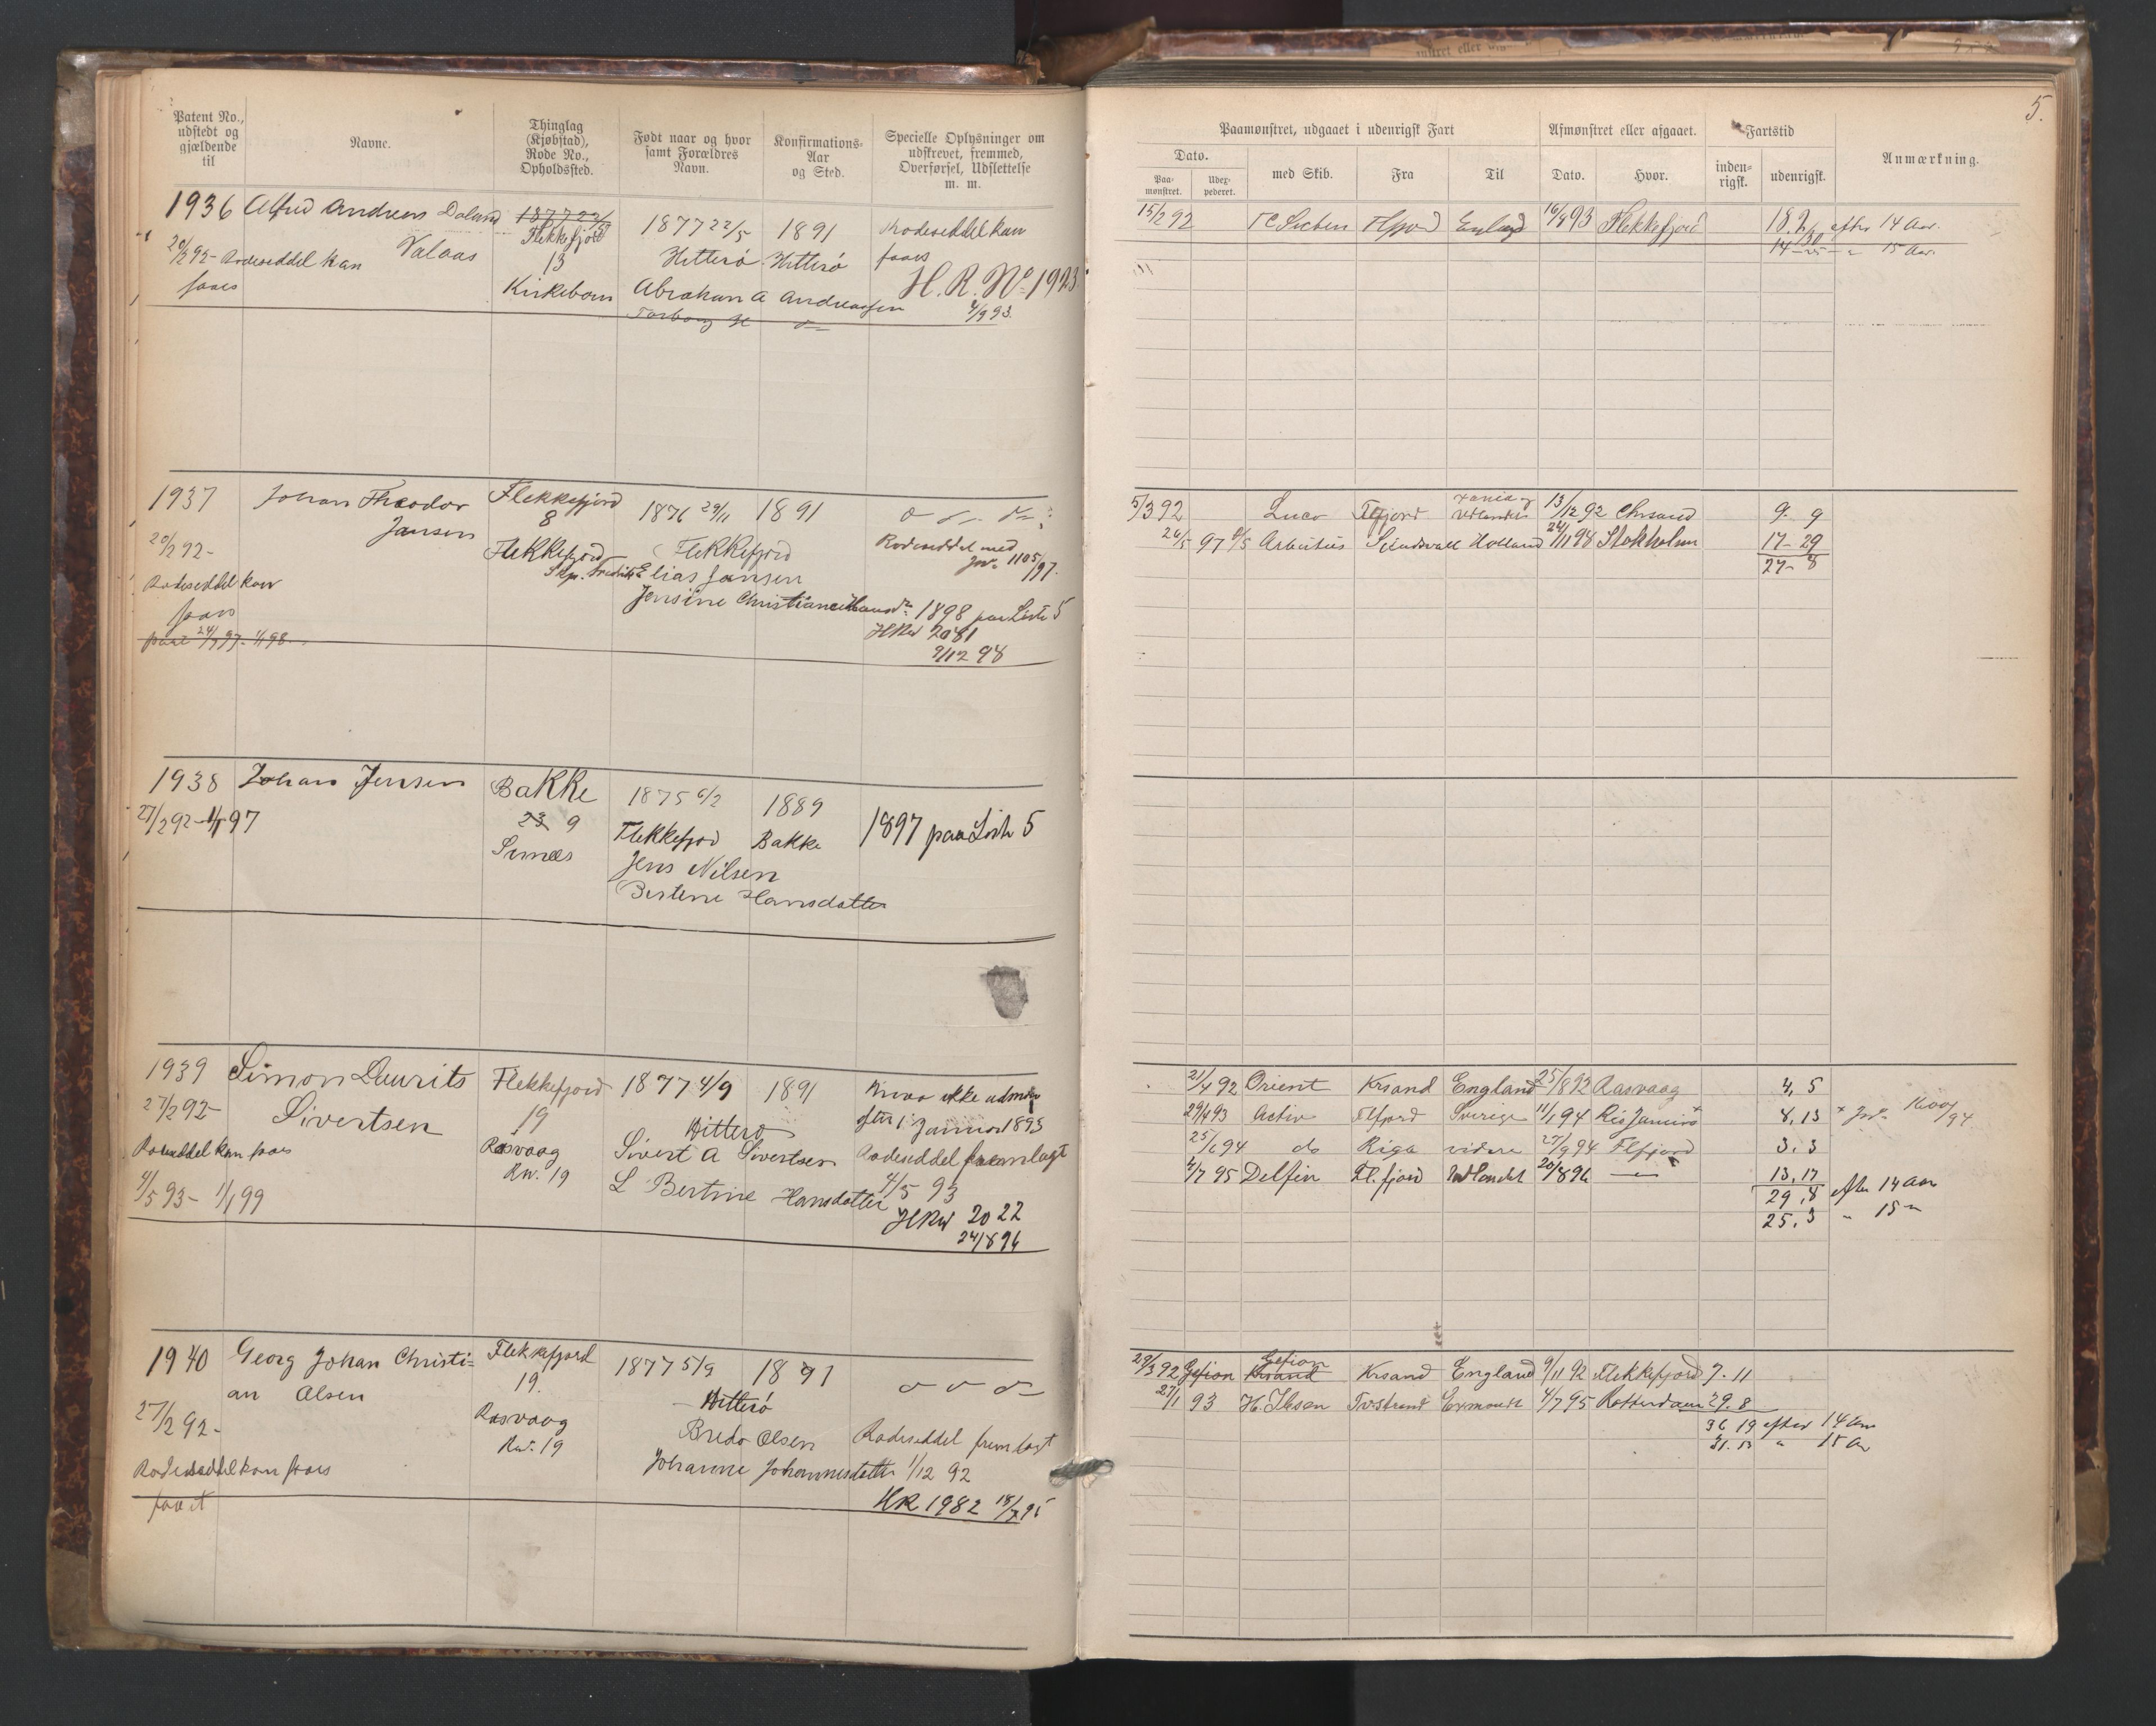 5.
Patent No., udstedt og gjældende til
Navne.
Thinglag (Kjøbstad), Rode No., Opholdssted.
Født naar og hvor samt Forældres Navn.
Konfirmations-Aar og Sted.
Specielle Oplysninger om udskrevet, fremmed, Overførsel, Udslettelse m. m.
Paamønstret, udgaaet i udenrigsk Fart
Dato.
Paa-mønstret.
Udex-pederet.
med Skib.
Fra
Til
Afmønstret eller afgaaet.
Dato.
Hvor.
Fartstid
inden-rigsk.
udenrigsk.
Anmærkning.
1936 Alfred Andreas Doland
Valaas
20/2 92- Rodeseddel kan
faaes
1877 22/5
Flekkefjord
13
Kirkebom
1877 22/5
Hitterø
Abraham A Andreassen
Torborg
1891
Hitterø
Rodeseddel kan
faaes
H. R. No 1923
4/9 93.
15/2 92
Flfjord England 16/9 93 Flekkefjord
18. 2 efter 14 Aar.
15 Aar.
1937 Johan Theodor
Jansen
20/2 92-
Rodeseddel kan
faaes
Flekkefjord
8
Flekkefjord
1876 29/11
Flekkefjord
Elias Jansen
Jensine Christiane
1891
Rodeseddel med
Jno 1105/97.
1898 paa Liste 5
HRW 2081
9/12 98
5/3 92 Luco Flfjord Udlandet 13/12 92 Chrsand 9. 9
26/5 97 Arbutus Sundsvall Holland 24/11 98 Stokholm 17- 29
27- 8
1938 Johan Jensen
27/2 92- 1/1 97
Bakke
23 9
Sirnæs
1875 6/2
Flekkefjord
Jens Nilsen
Bertine Hansdatter
1889
Bakke
1897 paa Liste 5
1939 Simon Laurits
Sivertsen
27/2 92-
Rodeseddel kan faaes
4/5 93- 1/1 99
Flekkefjord
19
Rasvaag
Rw. 19
1877 4/9
Hitterø
Sivert A Sivertsen
L Bertine Hansdatter
1891
ikke
efter 1. Januar 1893
Rodeseddel fremlagt
4/5 93
HRW 2022
24/8 96
21/4 92 Orient Krsand England 25/8 92 Rasvaag 4, 5
29/4 93 Activ Flfjord Sverige 11/1 94 Rio Janeiro + 8, 13 + Jno 1600/94
25/1 94 do Riga videre 27/9 94 Flfjord 3. 3
2/7 95 Delfin Fl. fjord Udlandet 20/8 96 — 13, 17
29, 8 efter 14 Aar
25, 3 " 15 "
1940 Georg Johan Christi-
an Olsen
27/2 92-
Rodeseddel kan faaes
faaet
Flekkefjord
19.
Rasvaag
Rw. 19
1877 5/9
Hitterø
Bredo Olsen
Johanne Johannesdatter
1891
Rodeseddel fremlagt
1/12 92
HR 1982 18/7 95
29/3 92 Gefion Krsand Gefion Krsand England 9/11 92 Flekkefjord 7. 11
27/1 93 H. Ibsen Tvestrand Exmouth 4/7 95 Rotterdam 29. 8
36 19 efter 14 Aar
31. 13 " 15 Aar